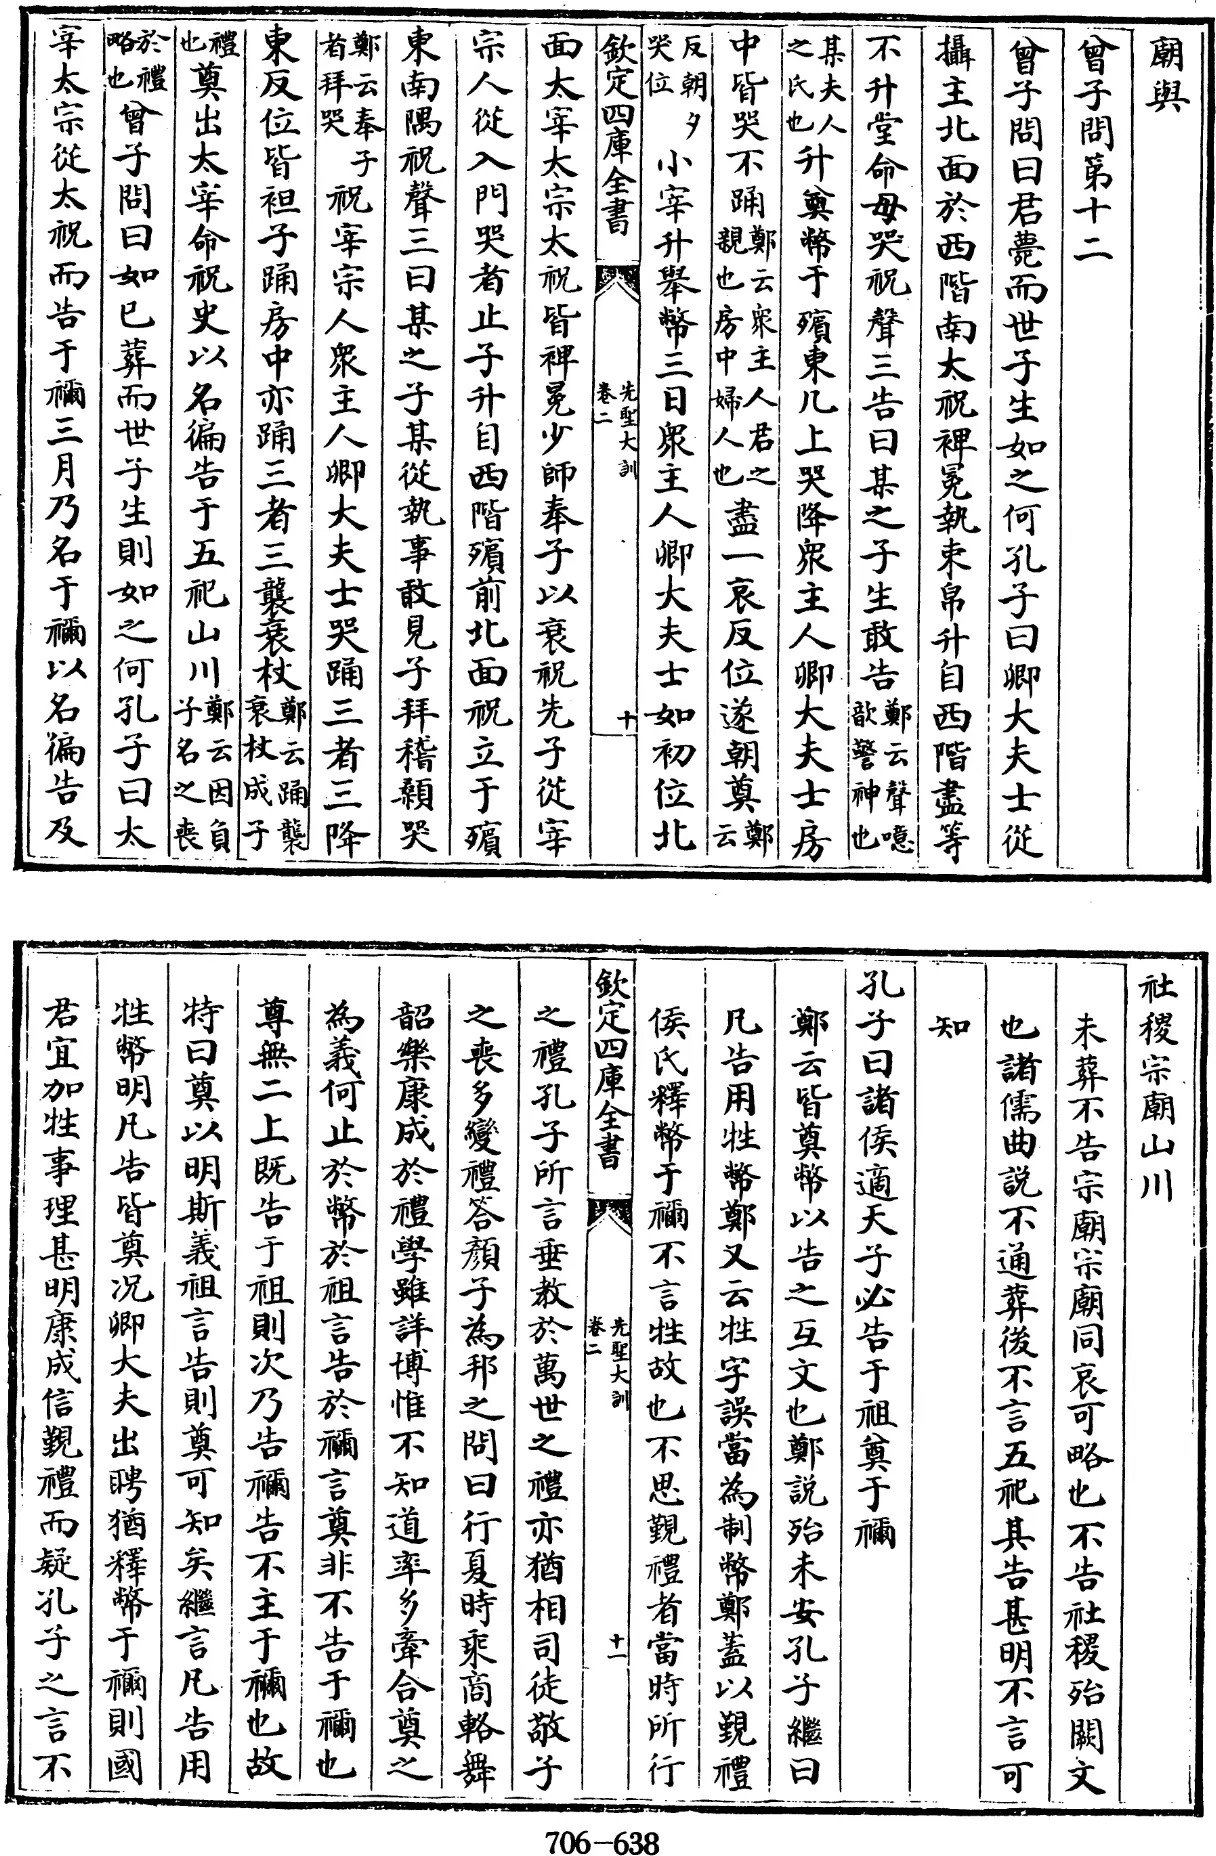 廟與
曾子問第十二
曾子問曰君薨而世子生如之何孔子曰卿大夫士從
攝主北面於西階南太祝裨冕執束帛升自西階盡等
不升堂命毋哭祝聲三告曰某之子生敢告鄭云聲噫歆警神也
某夫人之氏也升奠幣于殯東几上哭降衆主人卿大夫士房
中皆哭不踊鄭云衆主人君之親也房中婦人也盡一哀反位遂朝奠鄭云
反朝夕哭位小宰升舉幣三日衆主人卿大夫士如初位北
欽定四庫全書
先聖大訓
卷二
十
面太宰太宗太祝皆裨冕少師奉子以衰祝先子從宰
宗人從入門哭者止子升自西階殯前北面祝立于殯
東南隅祝聲三曰某之子某從執事敢見子拜稽顙哭
鄭云奉子者拜哭祝宰宗人衆主人卿大夫士哭踊三者三降
東反位皆袒子踊房中亦踊三者三襲衰杖鄭云踊襲衰杖成子
禮也奠出太宰命祝史以名徧告于五祀山川鄭云因負子名之喪
於禮略也曾子問曰如已葬而世子生則如之何孔子曰太
宰太宗從太祝而告于禰三月乃名于禰以名徧告及
社稷宗廟山川
未葬不告宗廟宗廟同哀可略也不告社稷殆闕文
也諸儒曲說不通葬後不言五祀其告甚明不言可
知
孔子曰諸侯適天子必告于祖奠于禰
鄭云皆奠幣以告之互文也鄭說殆未安孔子繼曰
凡告用牲幣鄭又云牲字誤當為制幣鄭蓋以覲禮
侯氏釋幣于禰不言牲故也不思覲禮者當時所行
欽定四庫全書
先聖大訓
卷二
十一
之禮孔子所言垂教於萬世之禮亦猶相司徒敬子
之喪多變禮答顏子為邦之問曰行夏時乘商輅舞
韶樂康成於禮學雖詳博惟不知道率多牽合奠之
為義何止於幣於祖言告於禰言奠非不告于禰也
尊無二上既告于祖則次乃告禰告不主于禰也故
特曰奠以明斯義祖言告則奠可知矣繼言凡告用
牲幣明凡告皆奠況卿大夫出聘猶釋幣于禰則國
君宜加牲事理甚明康成信覲禮而疑孔子之言不
706-638